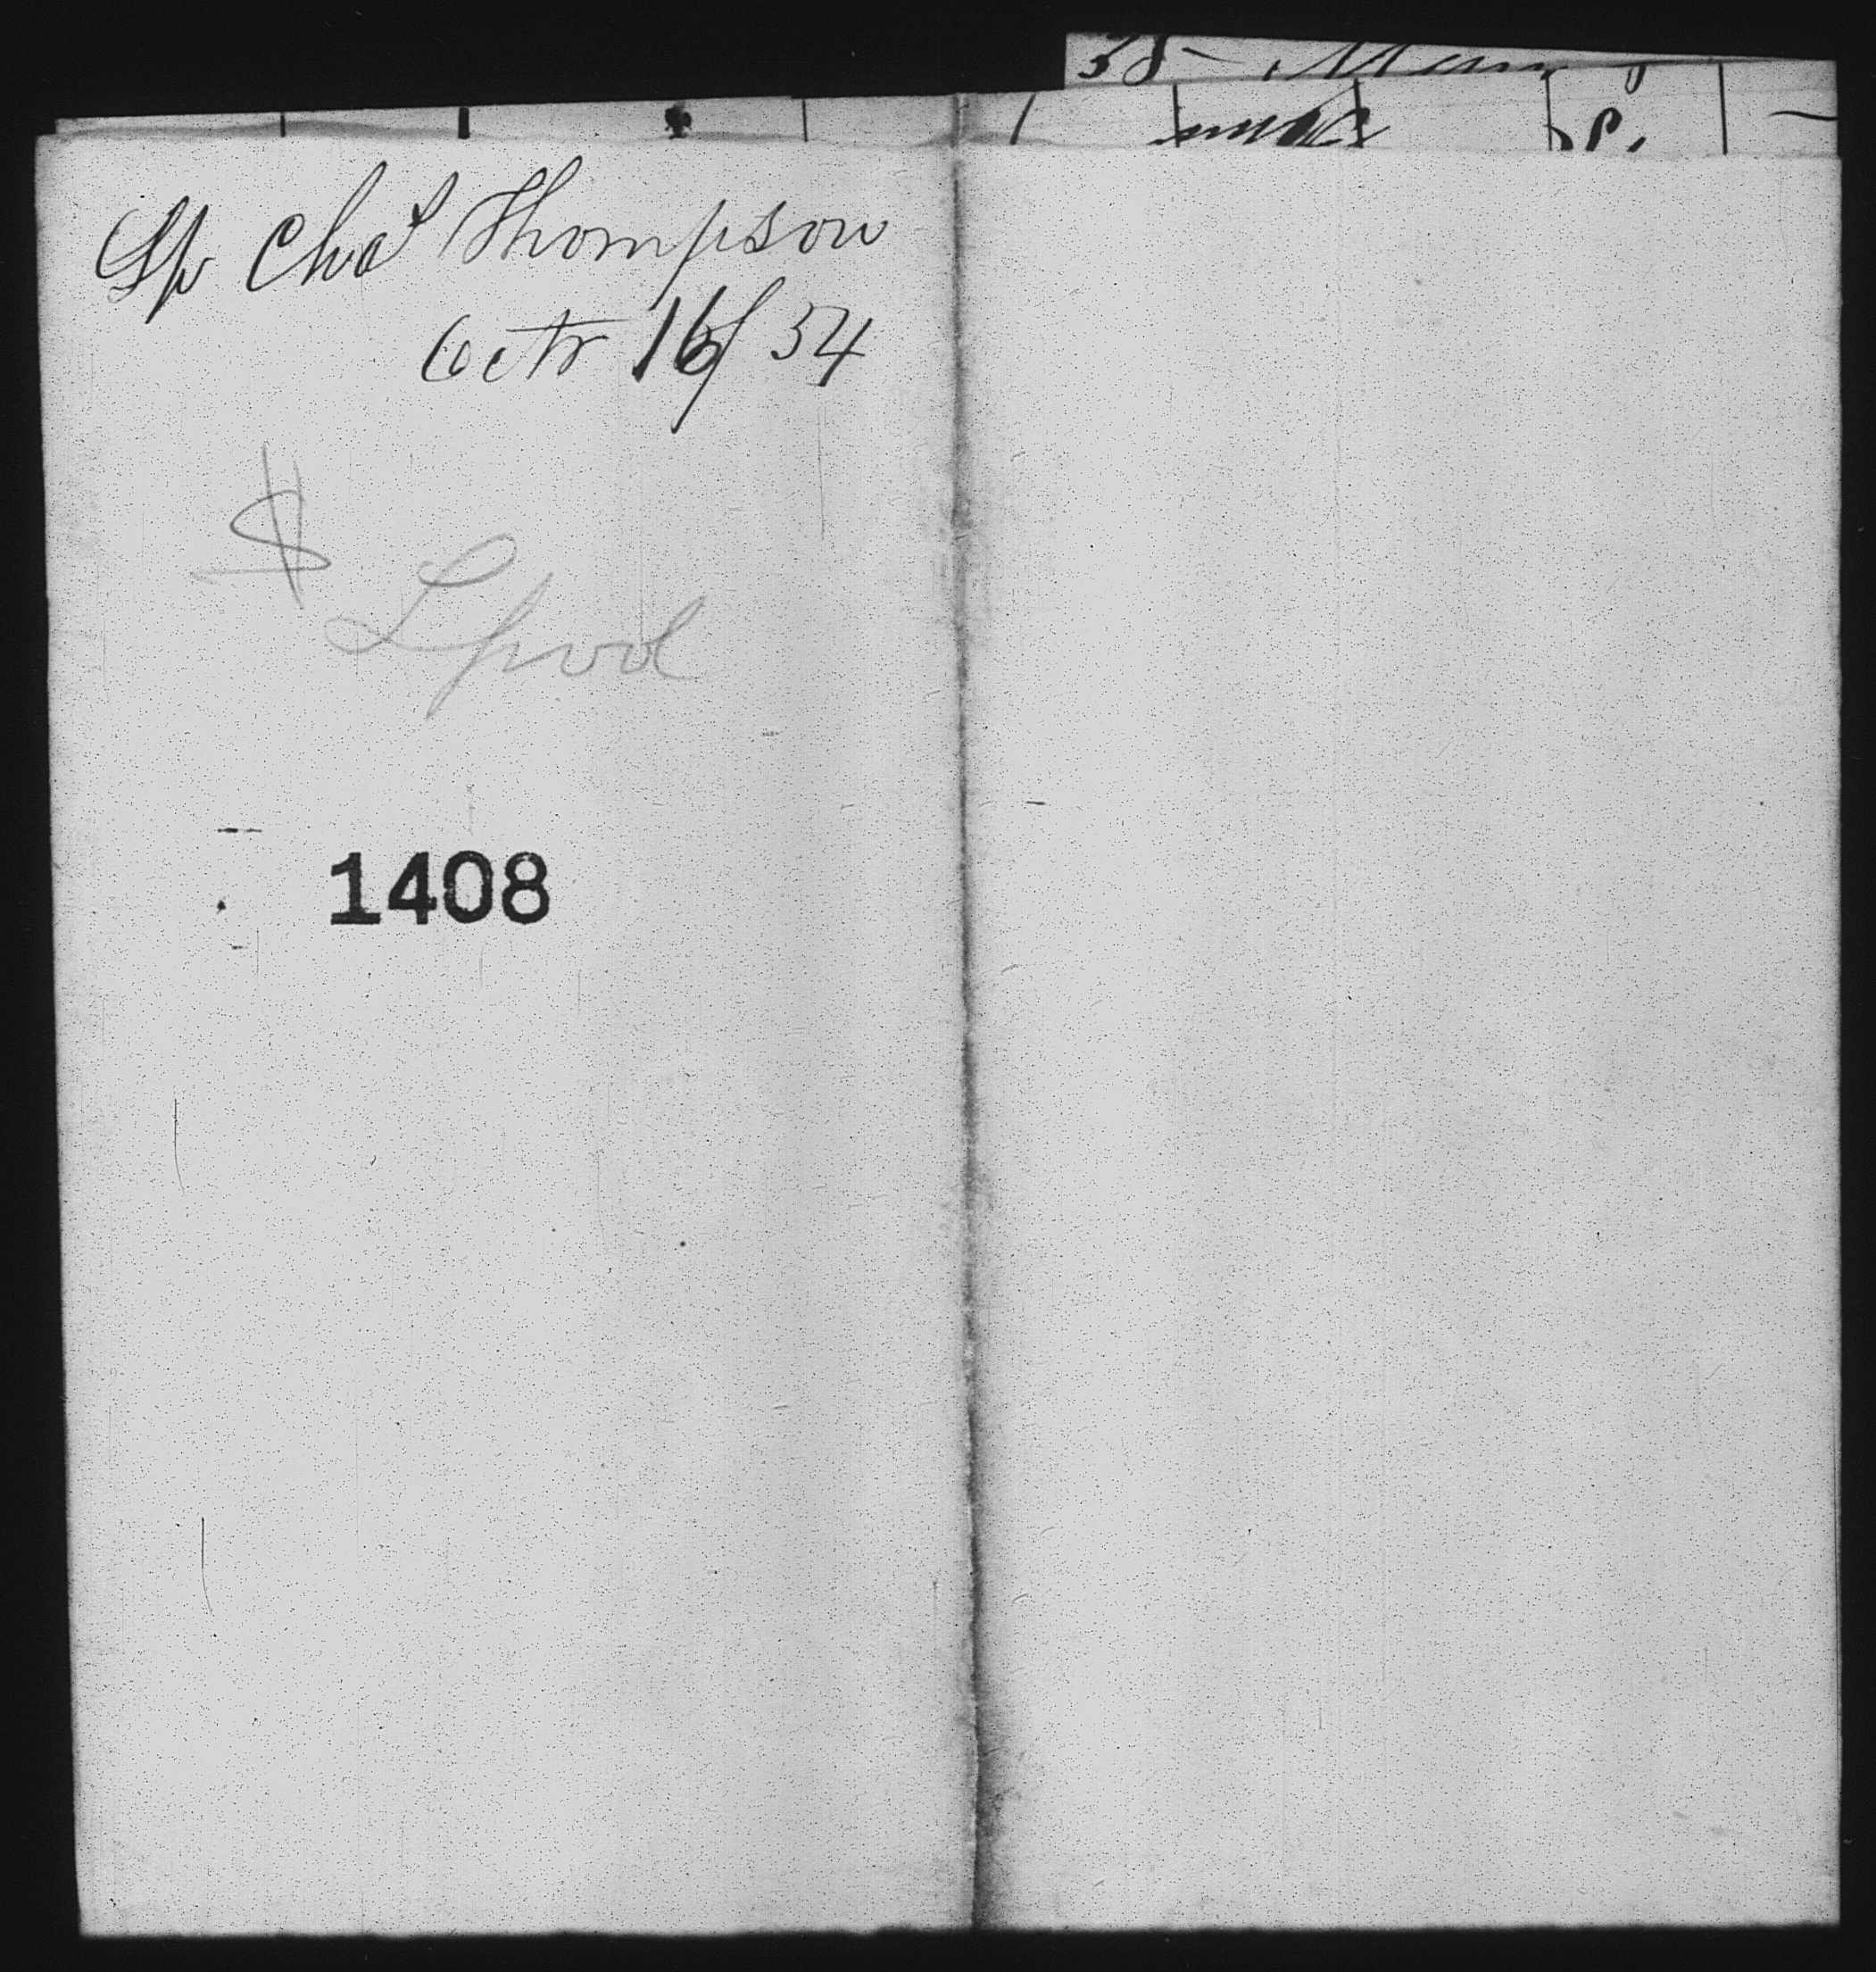 Sp Chas Thompson
Octr 16/54
$
Lpool
1408